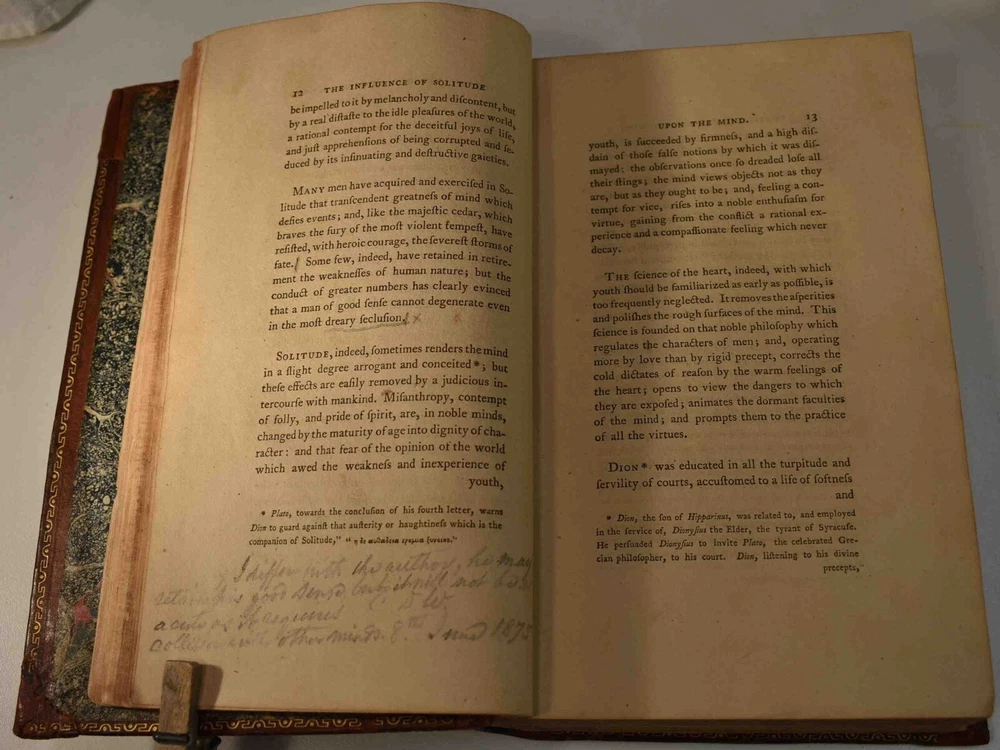 12 THE INFLUENCE OF SOLITUDE
be impelled to it by melancholy and diſcontent, but
by a real diſtaſte to the idle pleaſures of the world,
a rational contempt for the deceitful joys of life,
and juſt apprehenſions of being corrupted and ſe-
duced by its inſinuating and deſtructive gaieties.
MANY men have acquired and exerciſed in So-
litude that tranſcendent greatneſs of mind which
defies events; and, like the majeſtic cedar, which
braves the fury of the moſt violent tempeſt, have
reſiſted, with heroic courage, the ſevereſt ſtorms of
fate. Some few, indeed, have retained in retire-
ment the weakneſſes of human nature; but the
conduct of greater numbers has clearly evinced
that a man of good ſenſe cannot degenerate even
in the moſt dreary ſecluſion. x
SOLITUDE, indeed, ſometimes renders the mind
in a ſlight degree arrogant and conceited *; but
theſe effects are eaſily removed by a judicious in-
tercourſe with mankind. Miſanthropy, contempt
of folly, and pride of ſpirit, are, in noble minds,
changed by the maturity of age into dignity of cha-
racter: and that fear of the opinion of the world
which awed the weakneſs and inexperience of
youth,
* Plato, towards the concluſion of his fourth letter, warns
Dion to guard againſt that auſterity or haughtineſs which is the
companion of Solitude,” “
I differ with the author, he may
retain his good sense but it will not be so
acute as it requires
collision with other minds. 8th June 1875
UPON THE MIND. 13
youth, is ſucceeded by firmneſs, and a high diſ-
dain of thoſe falſe notions by which it was diſ-
mayed: the obſervations once ſo dreaded loſe all
their ſtings; the mind views objects not as they
are, but as they ought to be; and, feeling a con-
tempt for vice, riſes into a noble enthuſiaſm for
virtue, gaining from the conflict a rational ex-
perience and a compaſſionate feeling which never
decay.
THE ſcience of the heart, indeed, with which
youth ſhould be familiarized as early as poſſible, is
too frequently neglected. It removes the aſperities
and poliſhes the rough ſurfaces of the mind. This
ſcience is founded on that noble philoſophy which
regulates the characters of men; and, operating
more by love than by rigid precept, corrects the
cold dictates of reaſon by the warm feelings of
the heart; opens to view the dangers to which
they are expoſed; animates the dormant faculties
of the mind; and prompts them to the practice
of all the virtues.
DION * was educated in all the turpitude and
ſervility of courts, accuſtomed to a life of ſoftneſs
and
* Dion, the ſon of Hipparinus, was related to, and employed
in the ſervice of, Dionyſius the Elder, the tyrant of Syracuſe.
He perſuaded Dionyſius to invite Plato, the celebrated Gre-
cian philoſopher, to his court. Dion, liſtening to his divine
precepts,